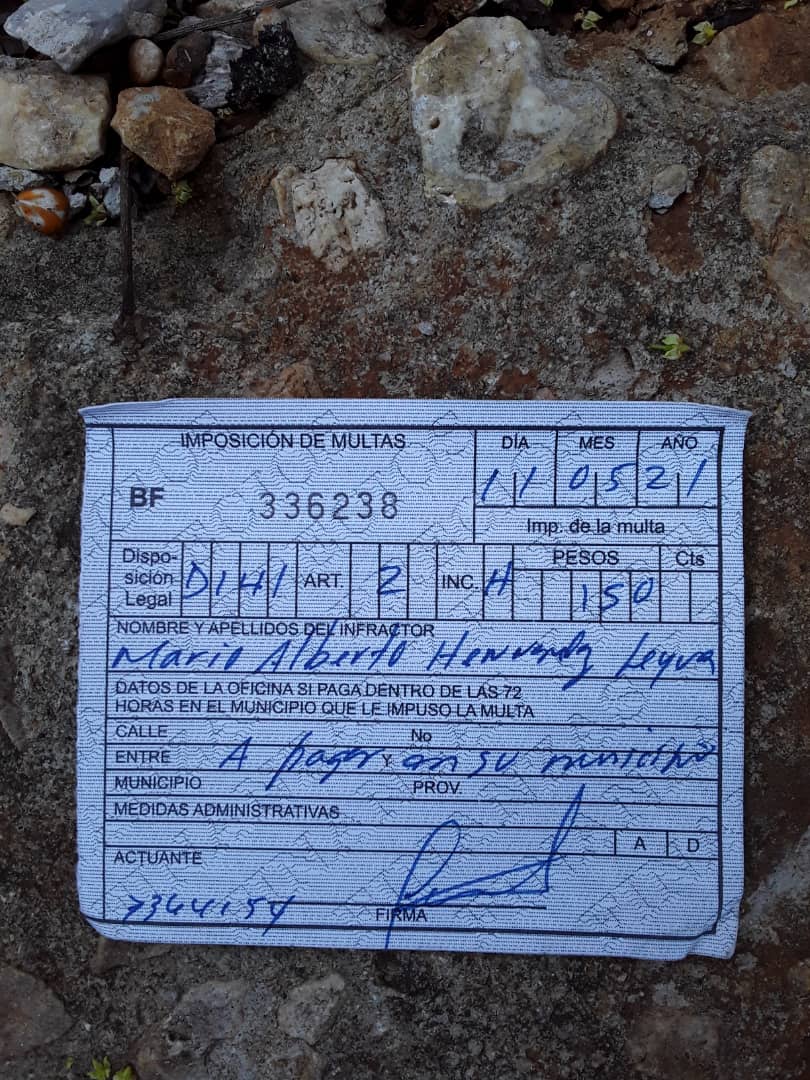 IMPOSICIÓN DE MULTAS
DÍA MES AÑO
BF 336238
11 05 21
Imp. de la multa
Disposición Legal D141 ART. 2 INC. H PESOS 150 Cts
NOMBRE Y APELLIDOS DEL INFRACTOR
Mario Alberto Hernandez Leyva
DATOS DE LA OFICINA SI PAGA DENTRO DE LAS 72
HORAS EN EL MUNICIPIO QUE LE IMPUSO LA MULTA
CALLE No
ENTRE A pagar Y en su municipio
MUNICIPIO PROV.
MEDIDAS ADMINISTRATIVAS
A D
ACTUANTE
7344154 FIRMA